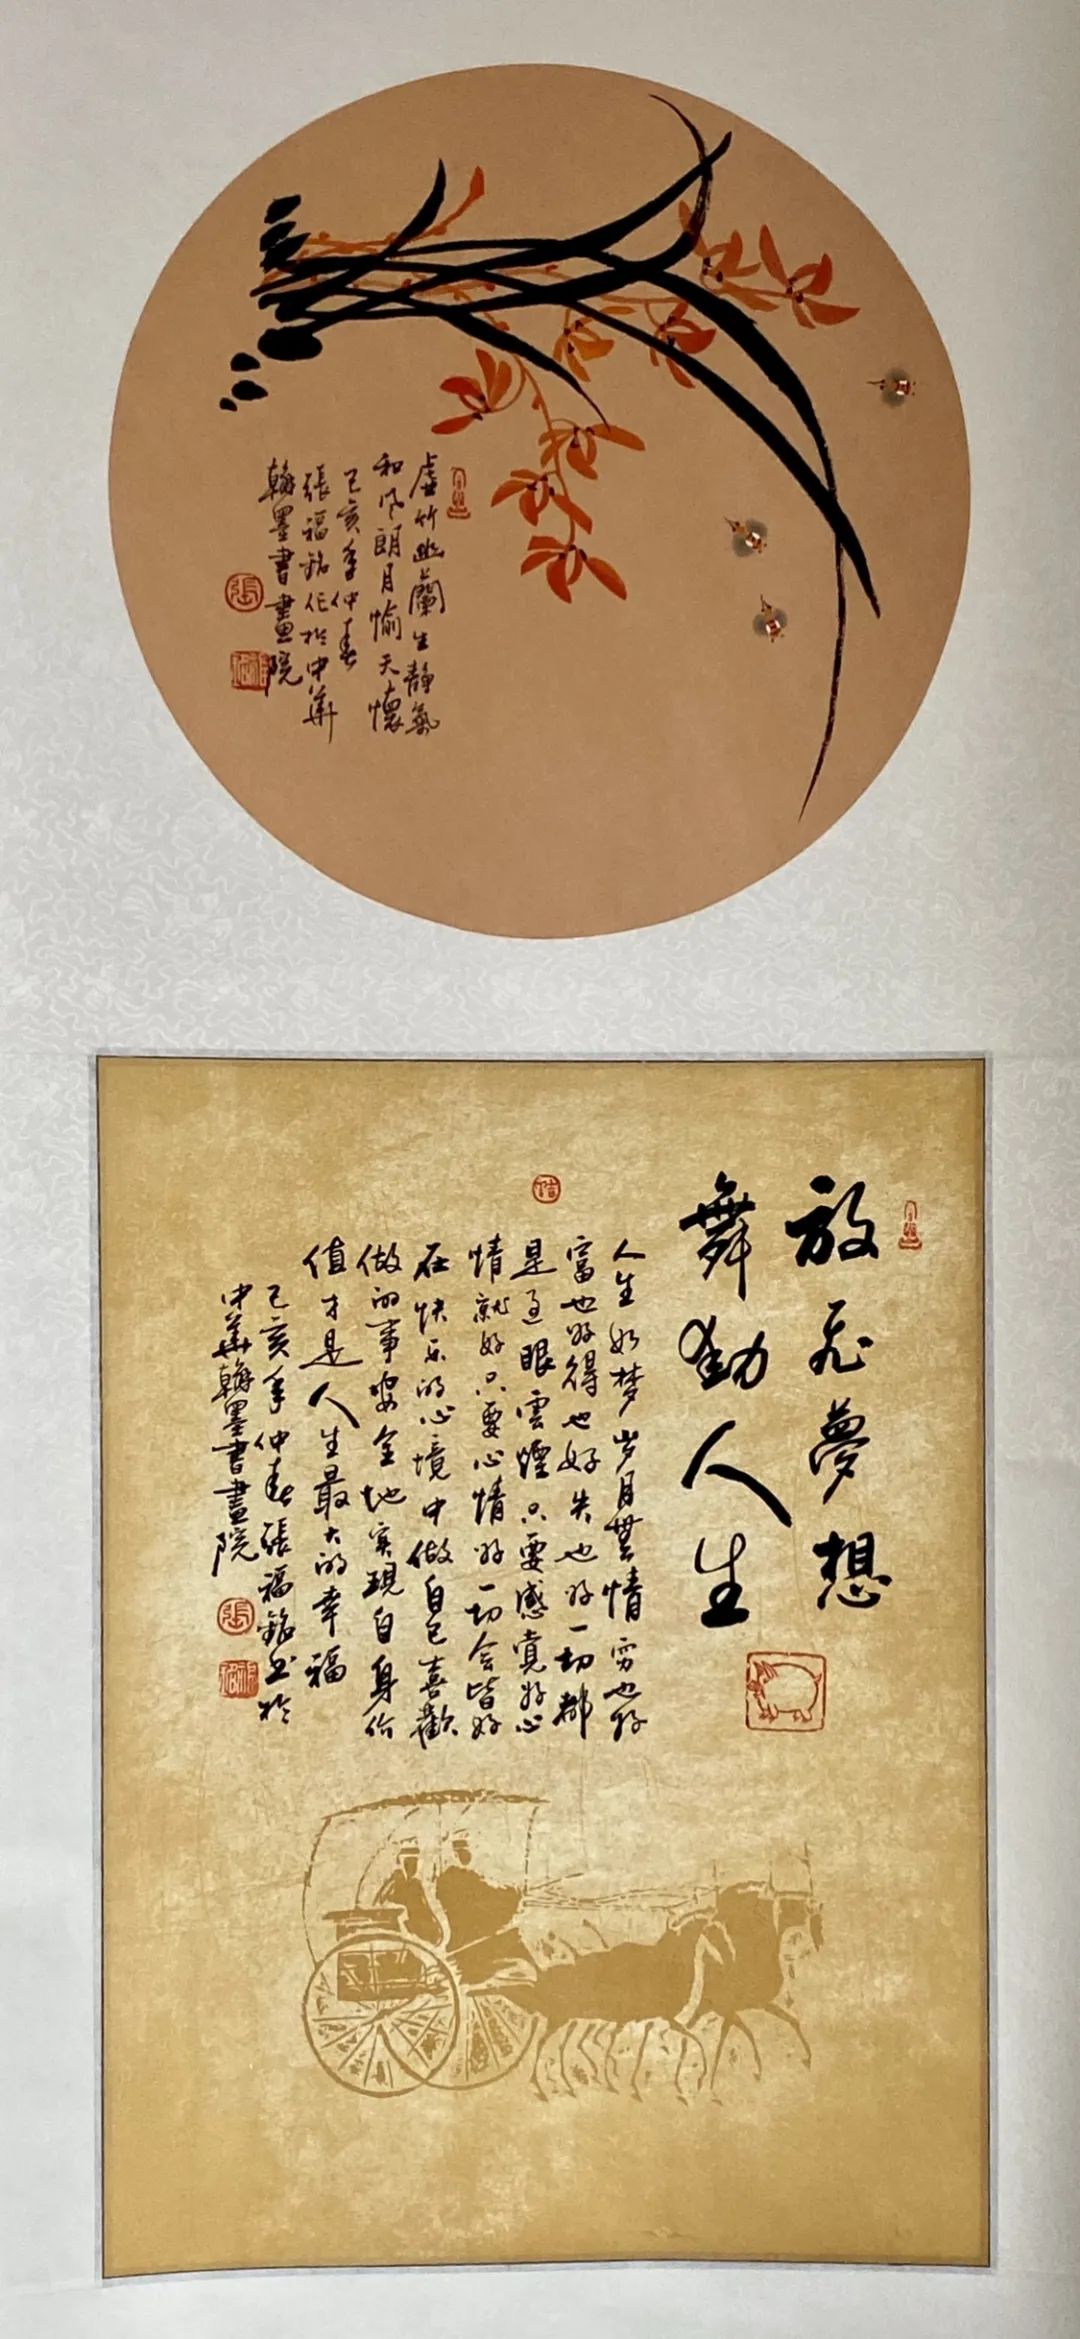 虚竹幽蘭生静氣
和风朗月愉天懷
己亥年仲春
張福銘作於中華
翰墨書畫院
放飞夢想
舞动人生
人生如梦岁月無情穷也好
富也好得也好失也好一切都
是过眼雲煙只要感觉好心
情就好只要心情好一切会皆好
在快乐的心境中做自己喜歡
做的事安全地实現自身价
值才是人生最大的幸福
己亥年仲春張福銘书於
中華翰墨書畫院